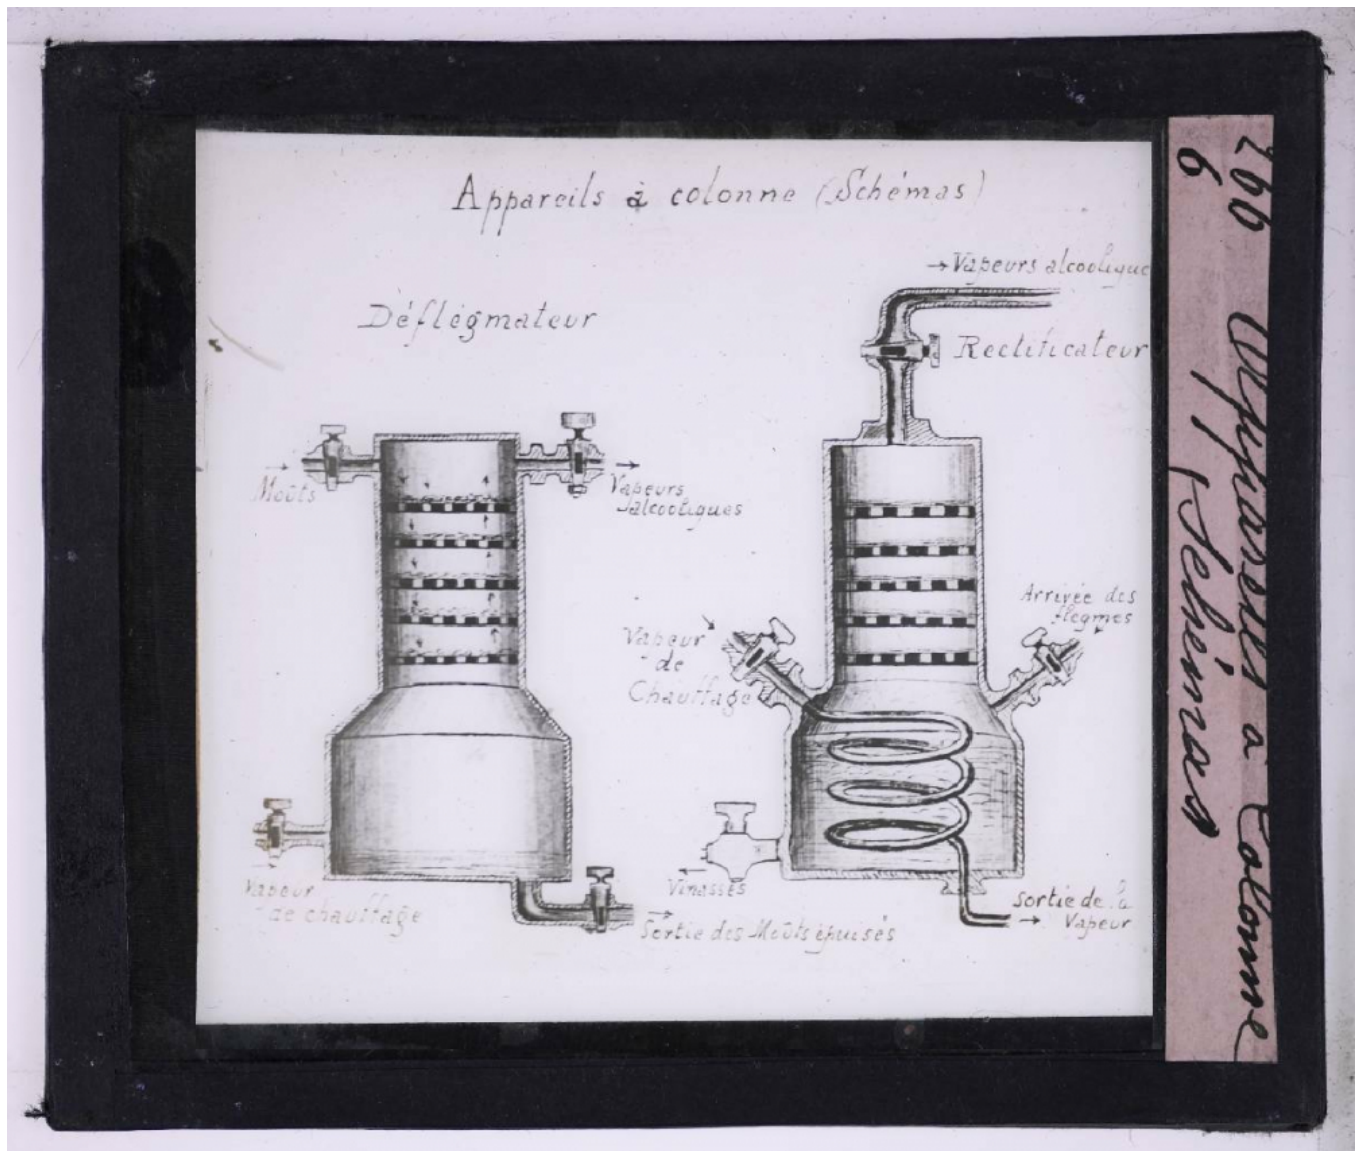 Appareils à colonne (Schémas)
Déflegmateur
Moûts
Vapeurs
alcooliques
Vapeur
de chauffage
Sortie des Moûts épuisés
→ Vapeurs alcoolique
Rectificateur
Vapeur
de
Chauffage
Arrivée des
flegmes
Vinasses
Sortie de la
Vapeur
266 Appareils a Colonne
6 (Schémas